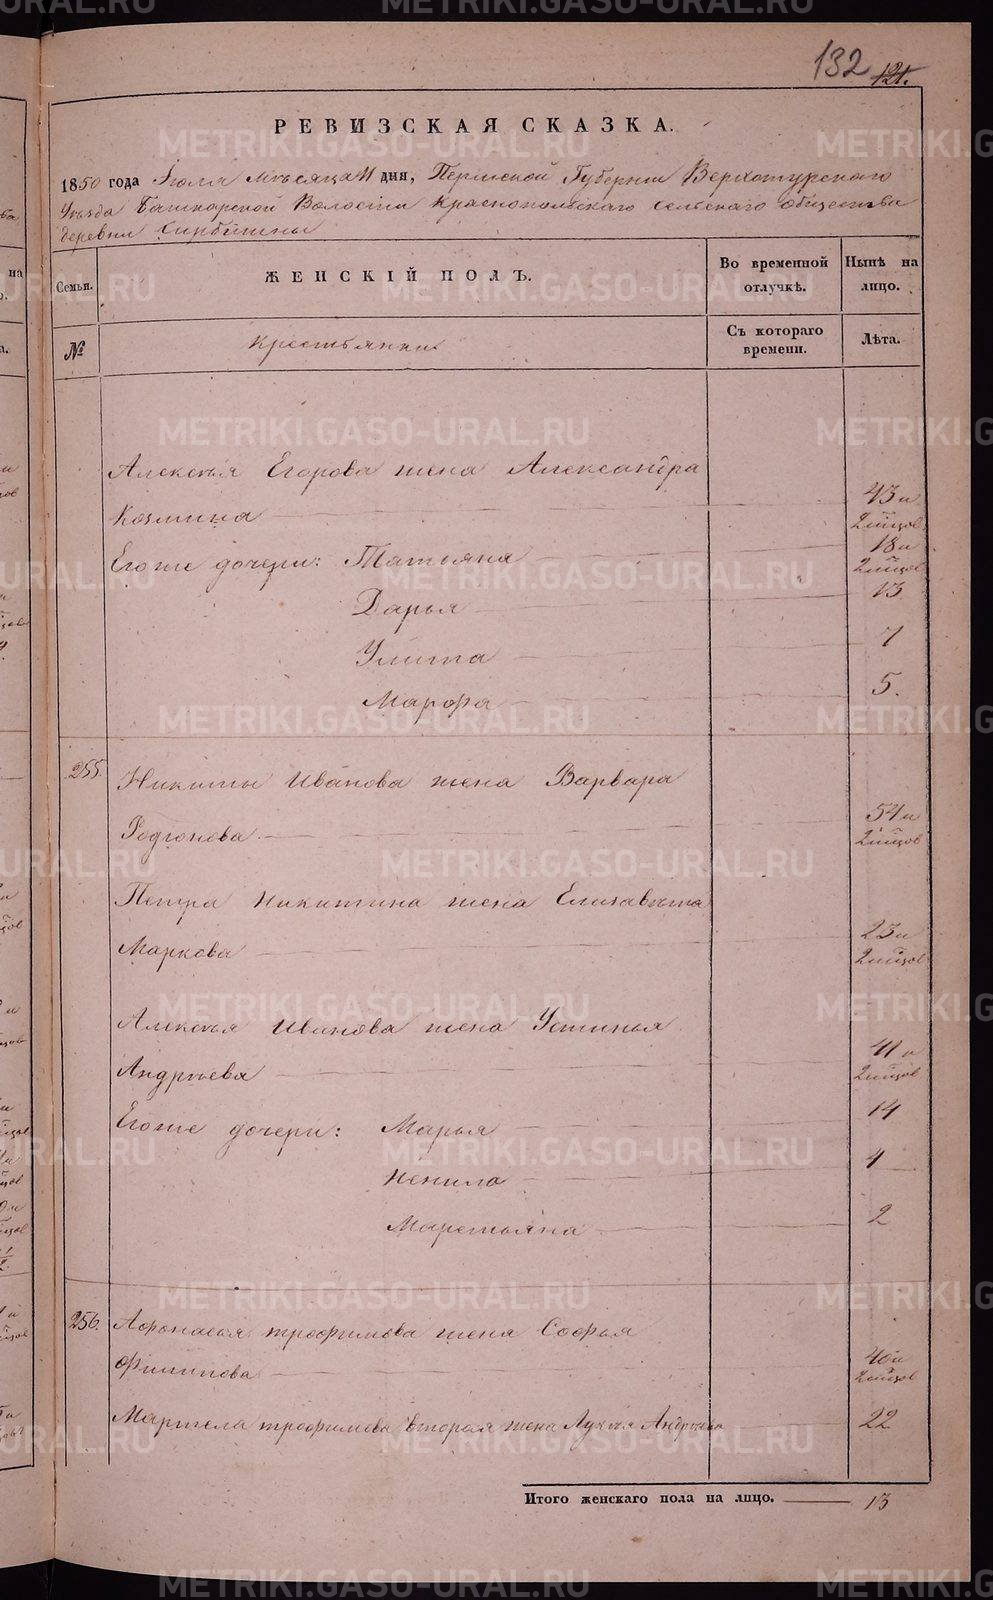 METRIKI.GASO-URAL.RU
132 121.
РЕВИЗСКАЯ СКАЗКА.
1850 года Іюля мѣсяца 11 дня, Пермской Губерніи Верхотурскаго
Уѣзда Башкарской Волости Краснопольскаго сельскаго общества
деревни
Семьи. ЖЕНСКІЙ ПОЛЪ. Во временной отлучкѣ. Нынѣ на лицо.
№ Крестьянки Съ котораго времени. Лѣта.
Алексѣя Егорова жена Александра
Козмина 43 и 2 мѣсцов
Егоже дочери: Татьяна 18 и 2 мѣсцов
Дарья 13
Улита 7
Марфа 5.
255. Никиты Иванова жена Варвара
Родіонова 54 и 2 мѣсцов
Петра Никитина жена Елизавѣта
Маркова 23 и 2 мѣсцов
Алексѣя Иванова жена Устинья
Андрѣева 41 и 2 мѣсцов
Егоже дочери: Марья 14
Ненила 4
Маремьяна 2
256. Афонасья Трофимова жена Софья
Филипова 40 и 2 мѣсцов
Мартела Трофимова вторая жена Лукѣя Андрѣева 22
Итого женскаго пола на лицо. 13